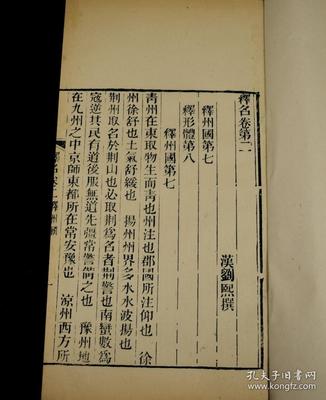 釋名卷第二
漢劉熙撰
釋州國第七
釋形體第八
釋州國第七
青州在東取物生而青也州注也郡國所注仰也　徐
州徐舒也土氣舒緩也　揚州州界多水水波揚也
荆州取名於荆山也必取荆爲名者荆警也南蠻數爲
寇逆其民有道後服無道先彊常警備之也　豫州地
在九州之中京師東都所在常安豫也　涼州西方所
孔夫子旧书网